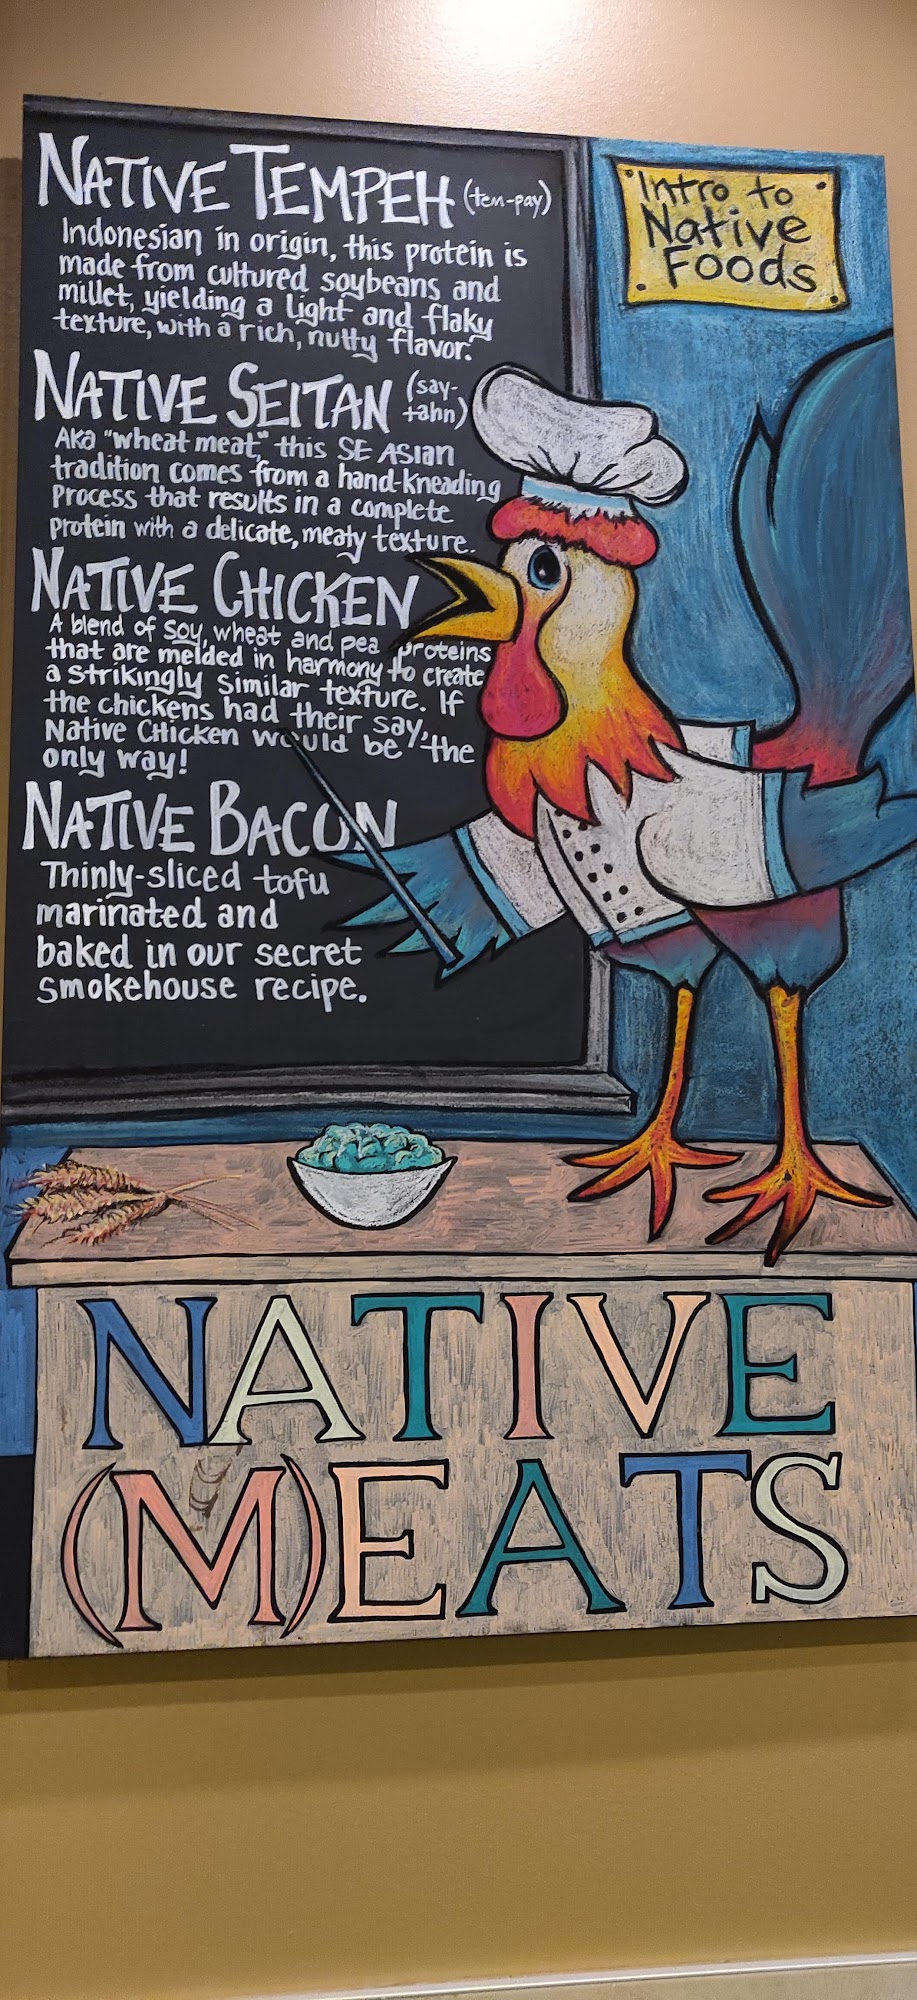 NATIVE TEMPEH (tem-pay)
Indonesian in origin, this protein is
made from cultured soybeans and
millet, yielding a light and flaky
texture, with a rich, nutty flavor.
NATIVE SEITAN (say-
tahn)
Aka "wheat meat," this SE Asian
tradition comes from a hand-kneading
Process that results in a complete
protein with a delicate, meaty texture.
NATIVE CHICKEN
A blend of soy, wheat and pea proteins
that are melded in harmony to create
a strikingly similar texture. If
the chickens had their say, the
Native Chicken would be the
only way!
NATIVE BACON
Thinly-sliced tofu
marinated and
baked in our secret
smokehouse recipe.
Intro to
Native
Foods
NATIVE
(M)EATS